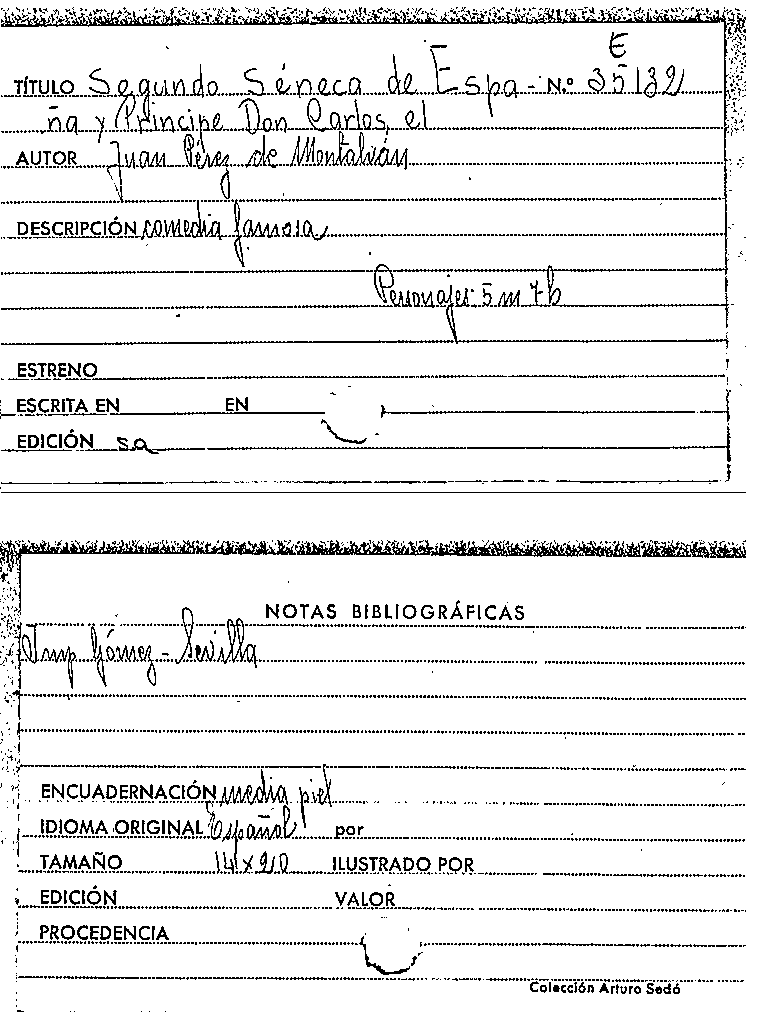 E
TÍTULO Segundo Séneca de Espa- N.º 35132
ña y Príncipe Don Carlos, el
AUTOR Juan Pérez de Montalván
DESCRIPCIÓN comedia famosa
Personajes: 5 m 7 h
ESTRENO
ESCRITA EN EN
EDICIÓN s.a
NOTAS BIBLIOGRÁFICAS
Imp Gómez - Sevilla
ENCUADERNACIÓN media piel
IDIOMA ORIGINAL Español por
TAMAÑO 14 x 20 ILUSTRADO POR
EDICIÓN VALOR
PROCEDENCIA
Colección Arturo Sedó